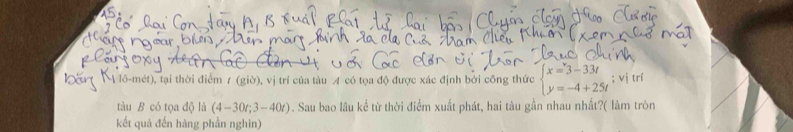 Có hai Con tàu A, B xuất phát từ hai bến, Chuyển động theo đường
thẳng ngoài biển, trên màn hình ra đa của trạm điều khiển (xem như mặt
phẳng oxy với Các đơn vị trên trục chính
bằng Ki lô-mét), tại thời điểm t (giờ), vị trí của tàu A có tọa độ được xác định bởi công thức { x = 3-33t
y = -4+25t ; vị trí
tàu B có tọa độ là (4-30t;3-40t). Sau bao lâu kể từ thời điểm xuất phát, hai tàu gần nhau nhất?( làm tròn
kết quả đến hàng phần nghìn)